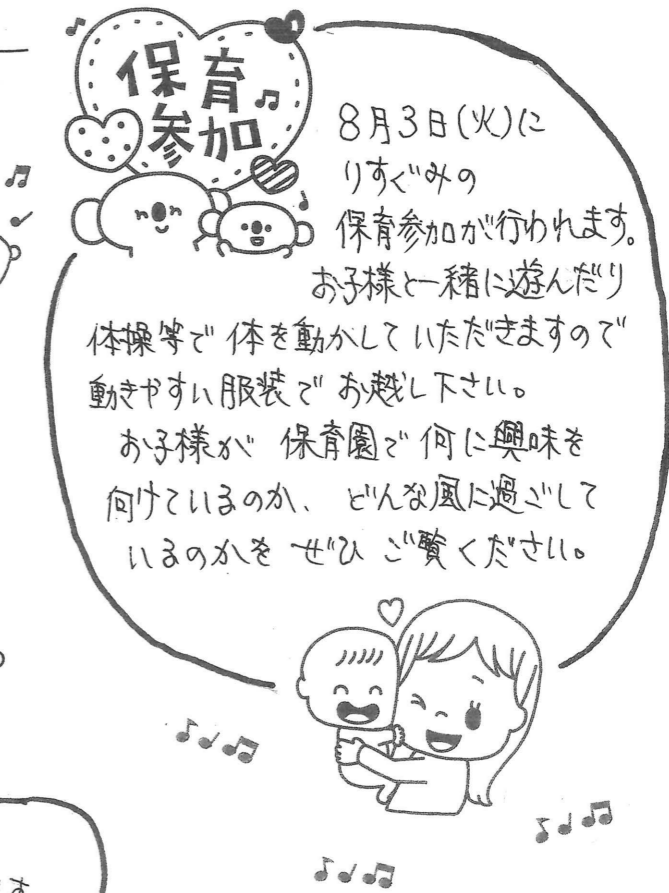 保育
参加
8月3日(火)に
りすぐみの
保育参加が行われます。
お子様と一緒に遊んだり
体操等で体を動かしていただきますので
動きやすい服装でお越し下さい。
お子様が 保育園で何に興味を
向けているのか、どんな風に過ごして
いるのかを ぜひ ご覧ください。
す